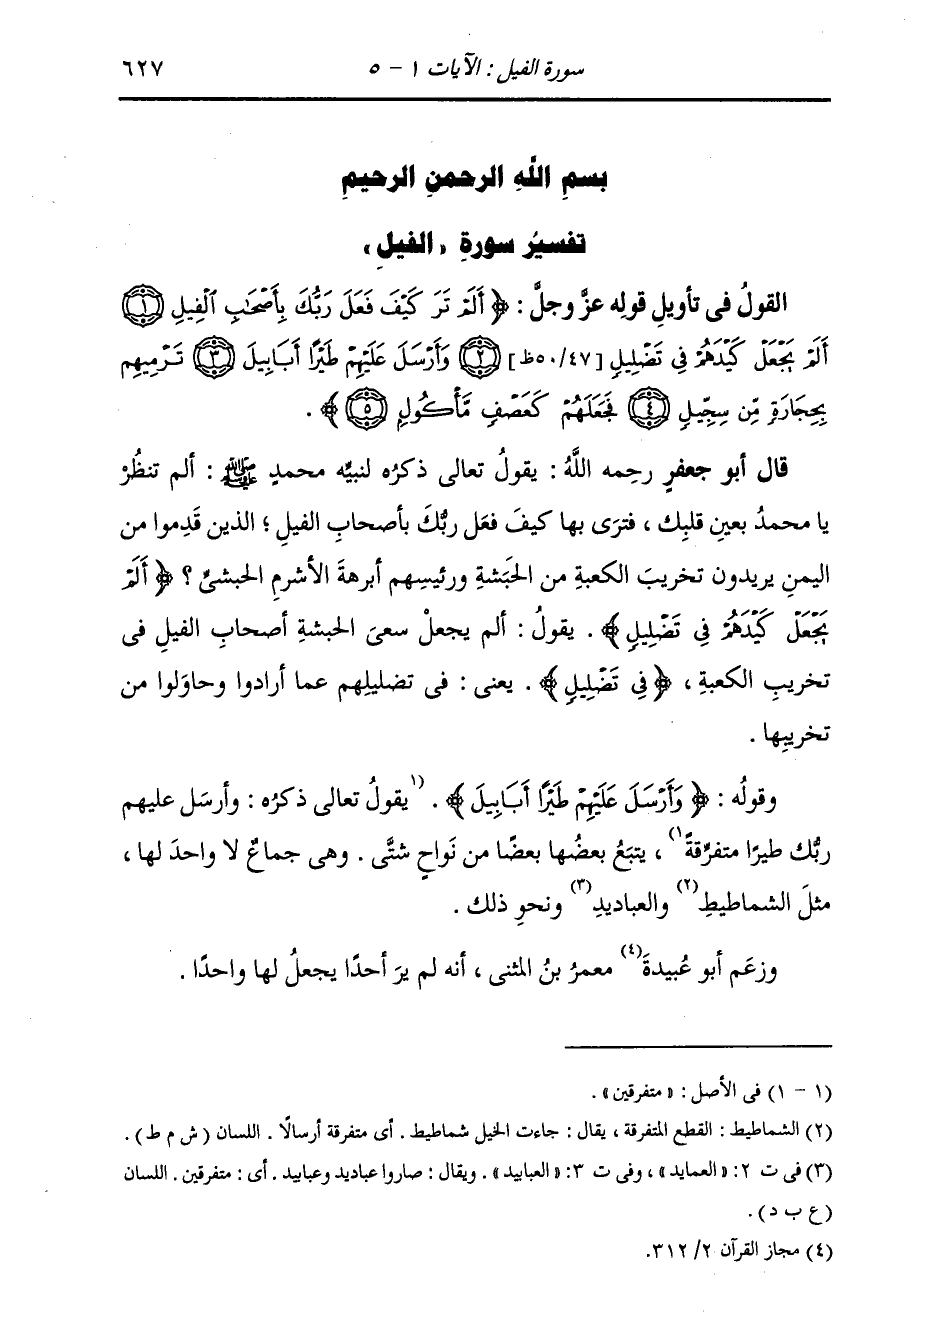 سورة الفيل : الآيات ١ - ٥ ٦٢٧
بسمِ اللَّهِ الرحمنِ الرحيمِ
تفسيرُ سورةِ «الفيلِ»
القولُ فى تأويلِ قولِه عزَّ وجلَّ : ﴿ أَلَمْ تَرَ كَيْفَ فَعَلَ رَبُّكَ بِأَصْحَٰبِ ٱلْفِيلِ ١
أَلَمْ يَجْعَلْ كَيْدَهُمْ فِي تَضْلِيلٍ [٥٠/٤٧ظ] ٢ وَأَرْسَلَ عَلَيْهِمْ طَيْرًا أَبَابِيلَ ٣ تَرْمِيهِم
بِحِجَارَةٍ مِّن سِجِّيلٍ ٤ فَجَعَلَهُمْ كَعَصْفٍ مَّأْكُولٍ ٥ ﴾ .
قال أبو جعفرٍ رحِمه اللَّهُ : يقولُ تعالى ذكرُه لنبيِّه محمدٍ ﷺ : ألم تنظُرْ
يا محمدُ بعينِ قلبِك ، فترَى بها كيفَ فعَل ربُّكَ بأصحابِ الفيلِ ؛ الذين قَدِموا من
اليمنِ يريدون تخريبَ الكعبةِ من الحبَشةِ ورئيسِهم أبرهةَ الأشرمِ الحبشىِّ ؟ ﴿ أَلَمْ
يَجْعَلْ كَيْدَهُمْ فِي تَضْلِيلٍ ﴾ . يقولُ : ألم يجعلْ سعىَ الحبشةِ أصحابِ الفيلِ فى
تخريبِ الكعبةِ ، ﴿ فِي تَضْلِيلٍ ﴾ . يعنى : فى تضليلِهم عما أرادوا وحاوَلوا من
تخريبِها .
وقولُه : ﴿ وَأَرْسَلَ عَلَيْهِمْ طَيْرًا أَبَابِيلَ ﴾ . (١يقولُ تعالى ذكرُه : وأرسَل عليهم
ربُّك طيرًا متفرِّقةً١) ، يتبَعُ بعضُها بعضًا من نَواحٍ شتَّى . وهى جماعٌ لا واحدَ لها ،
مثلَ الشماطيطِ(٢) والعباديدِ(٣) ونحوِ ذلك .
وزعَم أبو عُبيدةَ(٤) معمرُ بنُ المثنى ، أنه لم يرَ أحدًا يجعلُ لها واحدًا .
(١ - ١) فى الأصل : « متفرقين » .
(٢) الشماطيط : القطع المتفرقة ، يقال : جاءت الخيل شماطيط . أى متفرقة أرسالًا . اللسان ( ش م ط ) .
(٣) فى ت ٢: « العمايد » ، وفى ت ٣: « العبابيد » . ويقال : صاروا عباديد وعبابيد . أى : متفرقين . اللسان
(ع ب د) .
(٤) مجاز القرآن ٢/ ٣١٢.